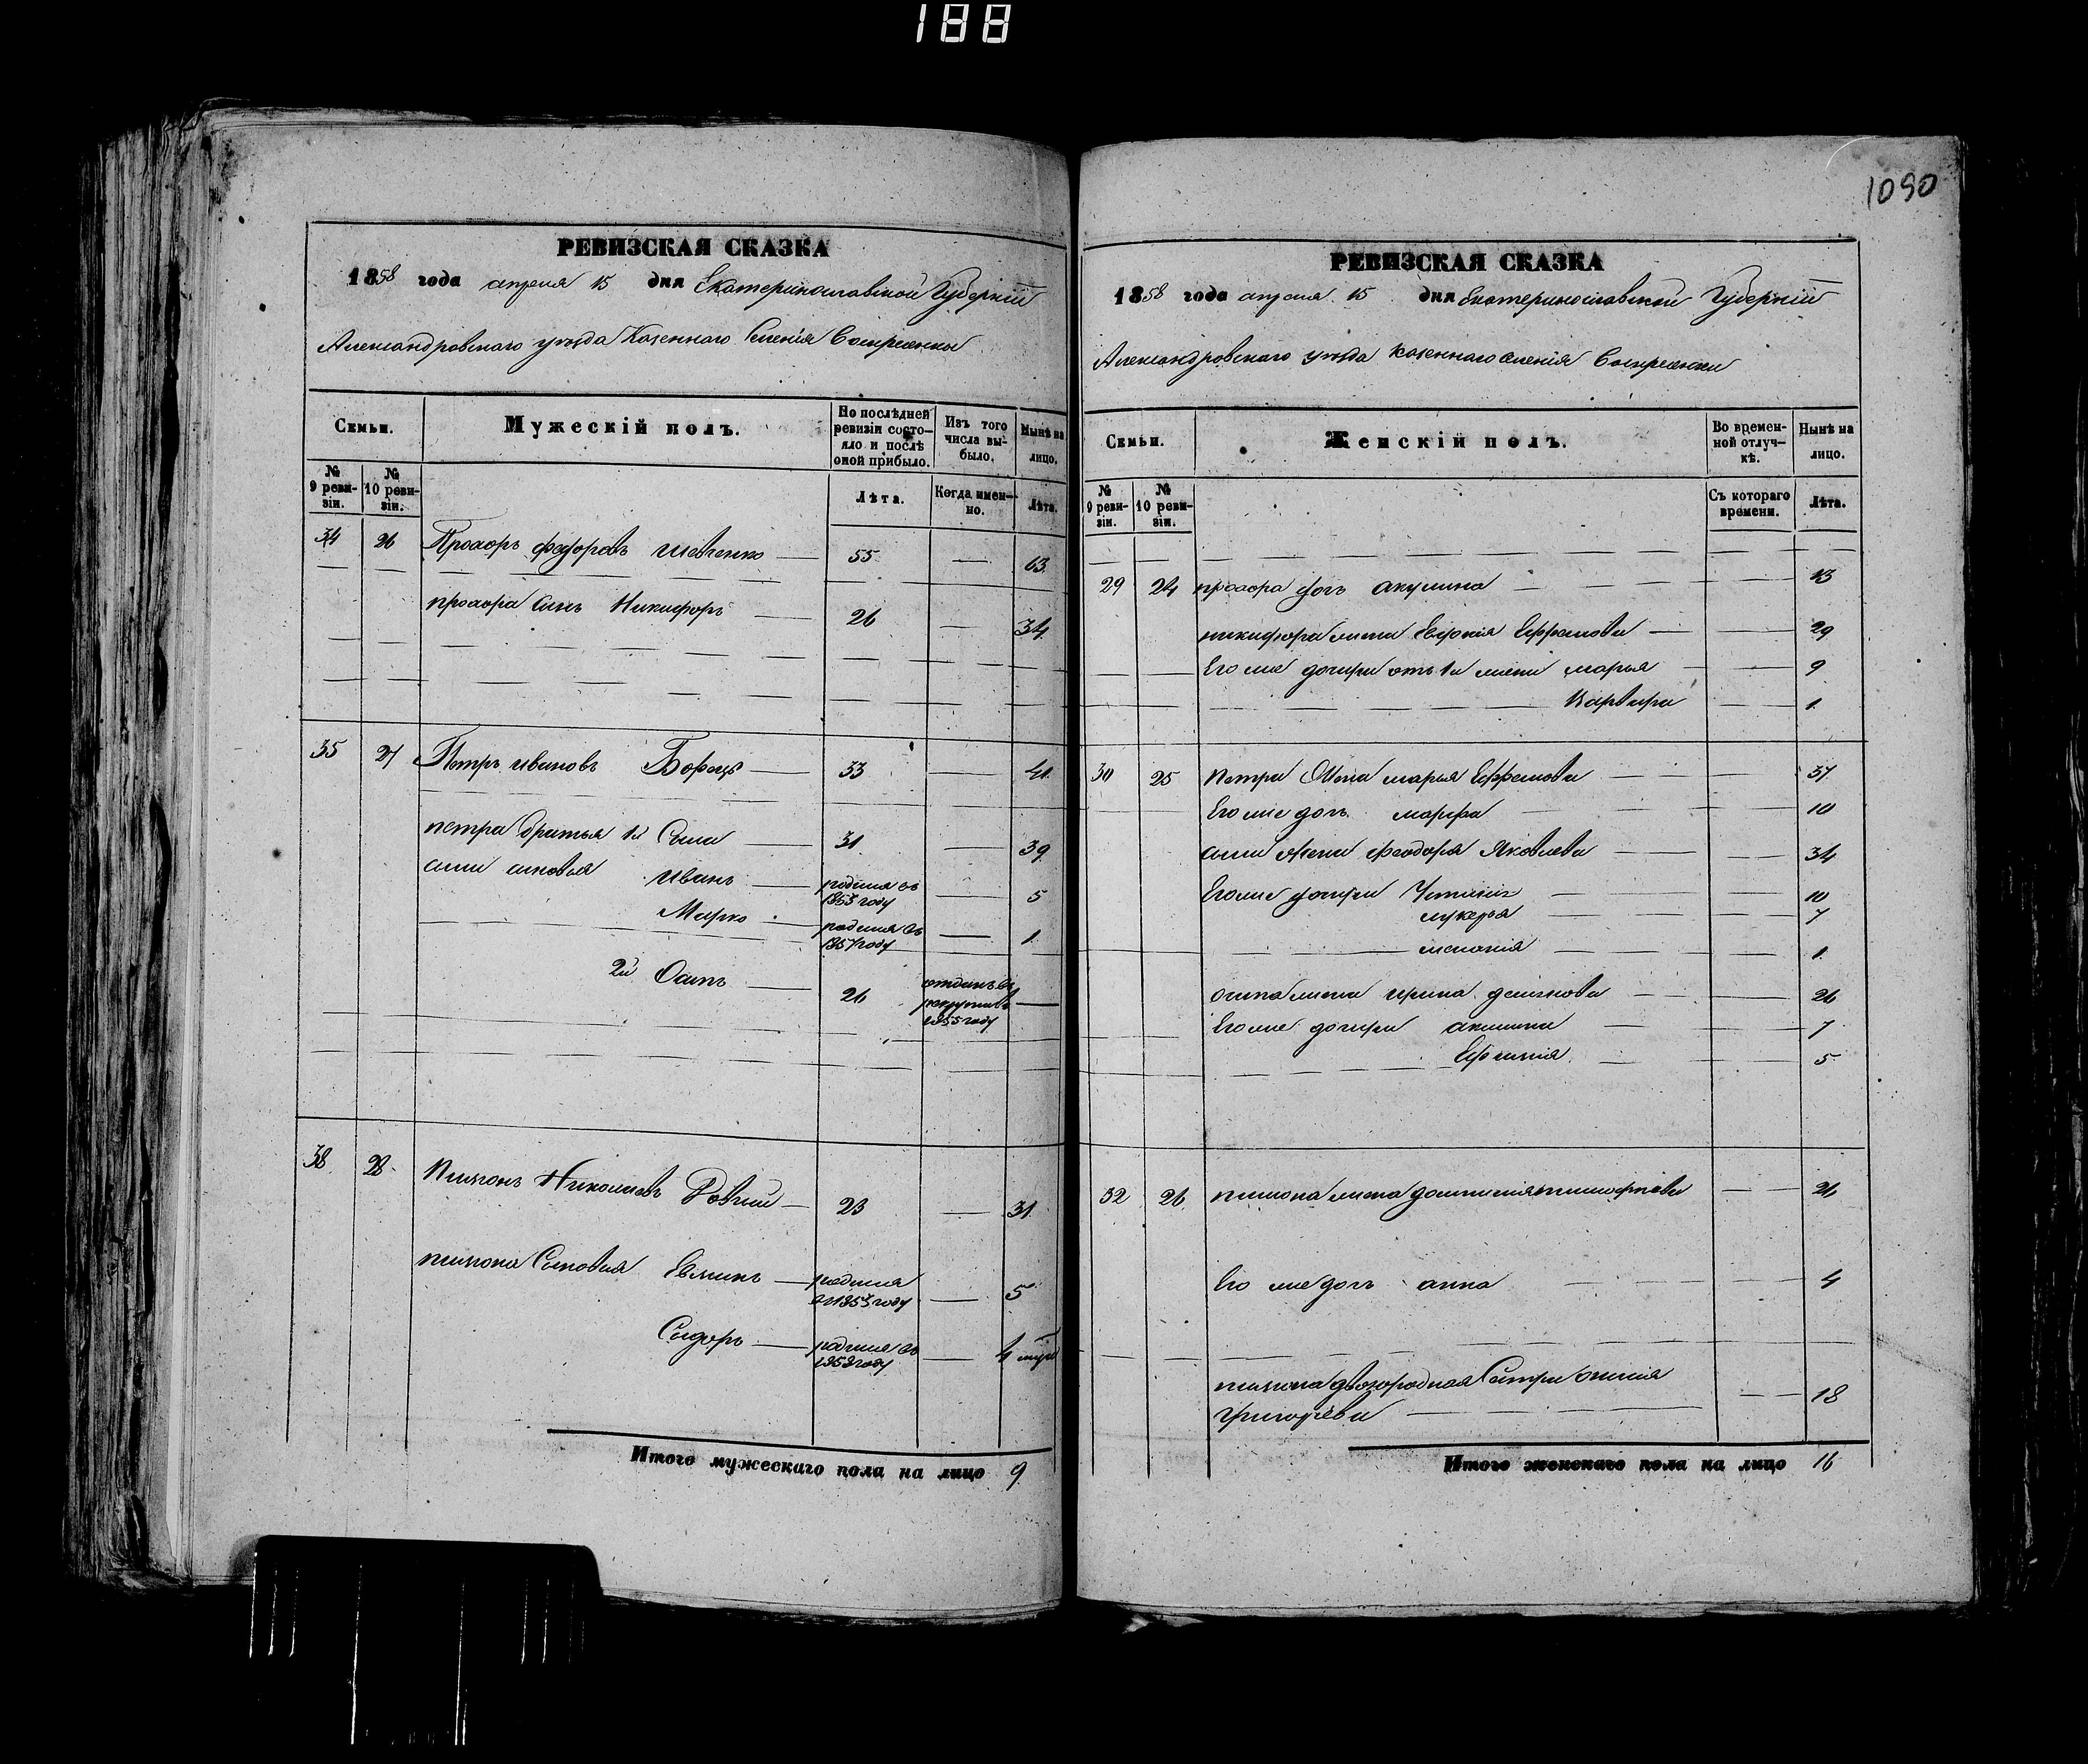 188
1090
РЕВИЗСКАЯ СКАЗКА
1858 года апреля 15 дня Екатеринославской Губерніи
Александровского уезда Казенного Селенія
Семьи.
Мужескій полъ.
По послѣдней ревизіи состо-
яло и послѣ
оной прибыло.
Изъ того
числа вы-
было.
Нынѣ на
лицо.
№
9 реви-
зіи.
№
10 реви-
зіи.
Лѣта.
Когда имен-
но.
Лѣта.
34 26 Прохоръ федоровъ Шевченко 55 63
прохора сынъ Никифоръ 26 34
35 27 Петръ ивановъ 33 41
петра братья 1й Сала 31 39
сыновья иванъ родился въ 1853 году 5
Марко родился въ 1857 году 1
2й Осипъ 26 отданъ въ рекруты въ 1855 году
38 28 Пимонъ Николаевъ 23 31
пимона Сыновья родился въ 1853 году 5
Сидоръ родился въ 1858 году 4
Итого мужескаго пола на лицо 9
РЕВИЗСКАЯ СКАЗКА
1858 года апреля 15 дня Екатеринославской Губерніи
Александровского уезда казенного селенія
Семьи.
Женскій полъ.
Во времен-
ной отлуч-
кѣ.
Нынѣ на
лицо.
№
9 реви-
зіи.
№
10 реви-
зіи.
Съ котораго
времени.
Лѣта.
29 24 прохора дочь акулина 13
никифора жена Евдокія Ефремова 29
Его же дочери отъ 1й жены марья 9
Варвара 1
30 25 Петра Жена марья Ефремова 37
Его же дочь марфа 10
жена феодора Яковлева 34
Его же дочери 10
лукерья 7
меланія 1
осипа жена ирина 26
Его же дочери акилина 7
Ефимія 5
32 26 пимона жена 26
Его же дочь анна 4
пимона двоюродная Сестра
григорьева 18
Итого женскаго пола на лицо 16